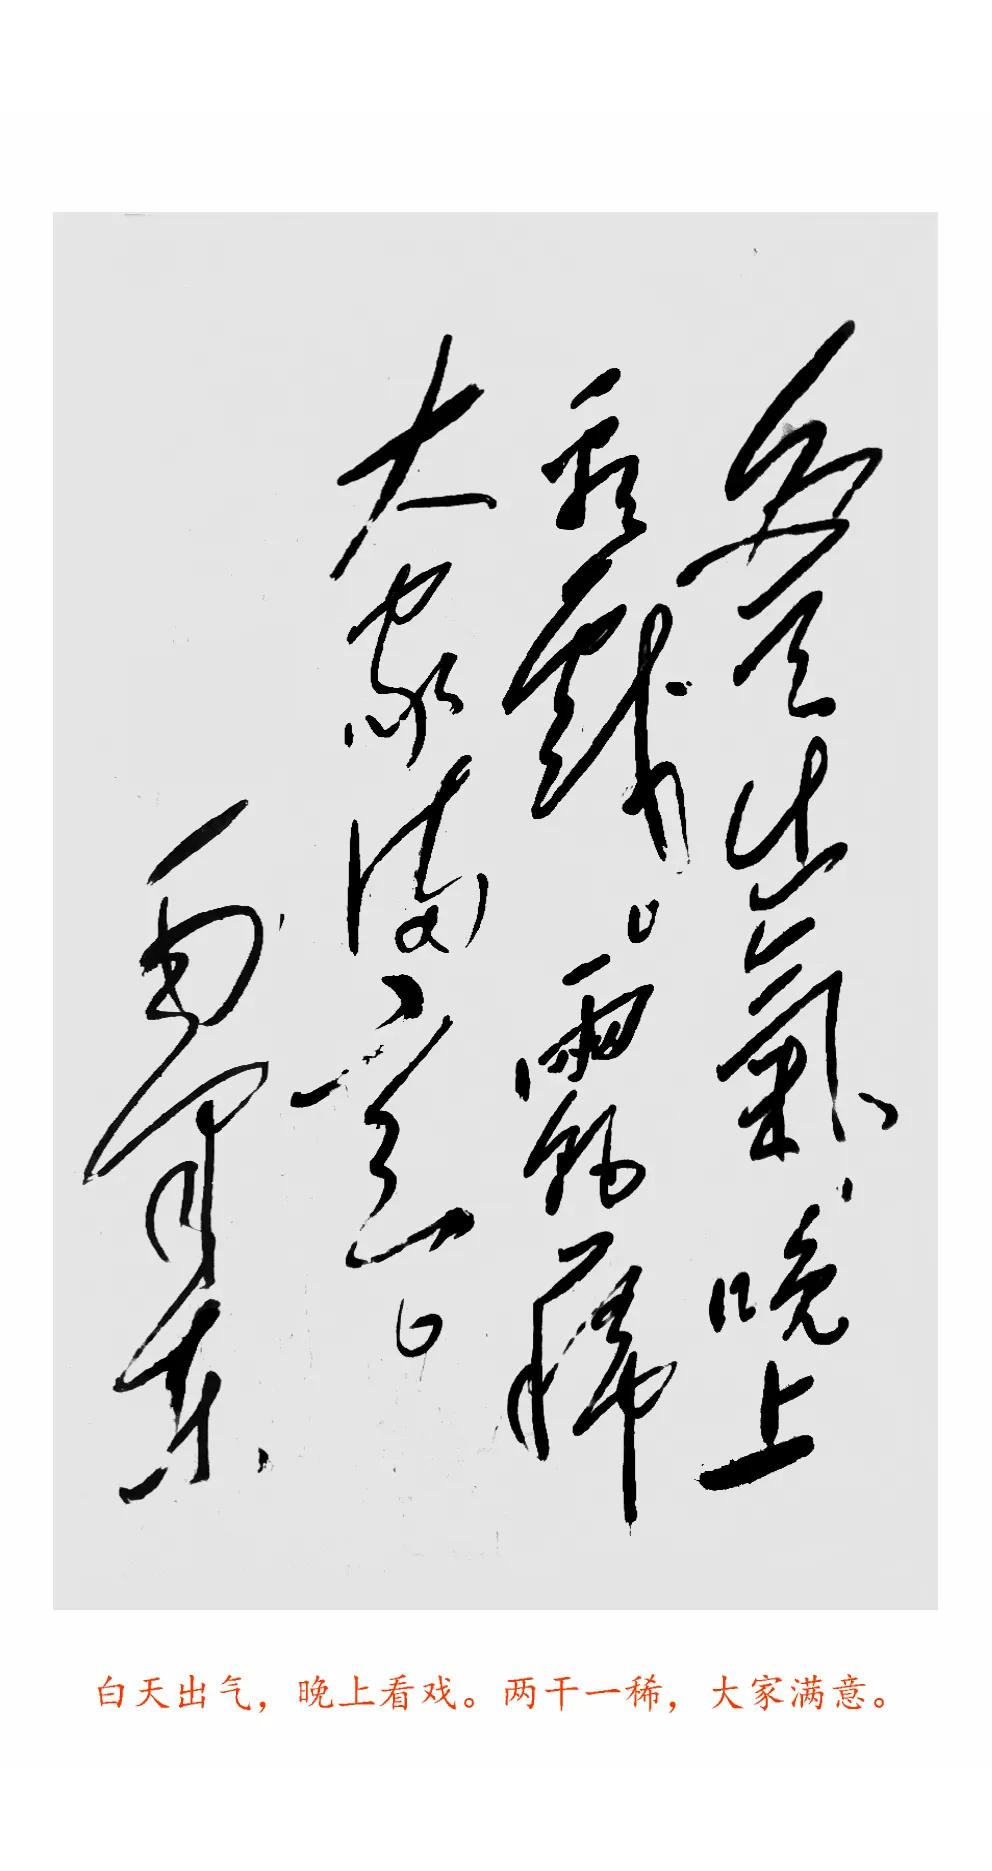 白天出氣，晚上
看戲。兩乾一稀
大家滿意。
毛澤東
白天出气，晚上看戏。两干一稀，大家满意。